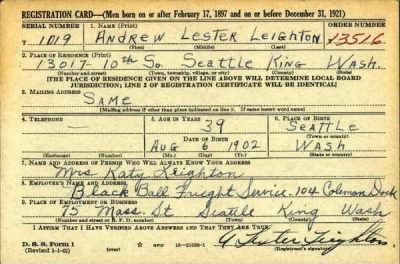 REGISTRATION CARD—(Men born on or after February 17, 1897 and on or before December 31, 1921)
SERIAL NUMBER 1. NAME (Print) ORDER NUMBER
T 1019 ANDREW LESTER LEIGHTON 13516
(First) (Middle) (Last)
2. PLACE OF RESIDENCE (Print)
13017 10th So. Seattle King Wash.
(Number and street) (Town, township, village, or city) (County) (State)
[THE PLACE OF RESIDENCE GIVEN ON THE LINE ABOVE WILL DETERMINE LOCAL BOARD
JURISDICTION; LINE 2 OF REGISTRATION CERTIFICATE WILL BE IDENTICAL]
3. MAILING ADDRESS
SAME
(Mailing address if other than place indicated on line 2. If same insert word same)
4. TELEPHONE 5. AGE IN YEARS 6. PLACE OF BIRTH
— 39 SEATTLE
DATE OF BIRTH (Town or county)
AUG 6 1902 WASH
(Exchange) (Number) (Mo.) (Day) (Yr.) (State or country)
7. NAME AND ADDRESS OF PERSON WHO WILL ALWAYS KNOW YOUR ADDRESS
Mrs Katy Leighton
8. EMPLOYER'S NAME AND ADDRESS
Black Ball Freight Service. 104 Coleman Dock
9. PLACE OF EMPLOYMENT OR BUSINESS
75 Mass. St Seattle King Wash
(Number and street or R. F. D. number) (Town) (County) (State)
I AFFIRM THAT I HAVE VERIFIED ABOVE ANSWERS AND THAT THEY ARE TRUE.
D. S. S. Form 1 GPO 16—21630-1 A Lester Leighton
(Revised 1-1-42) (over) (Registrant's signature)